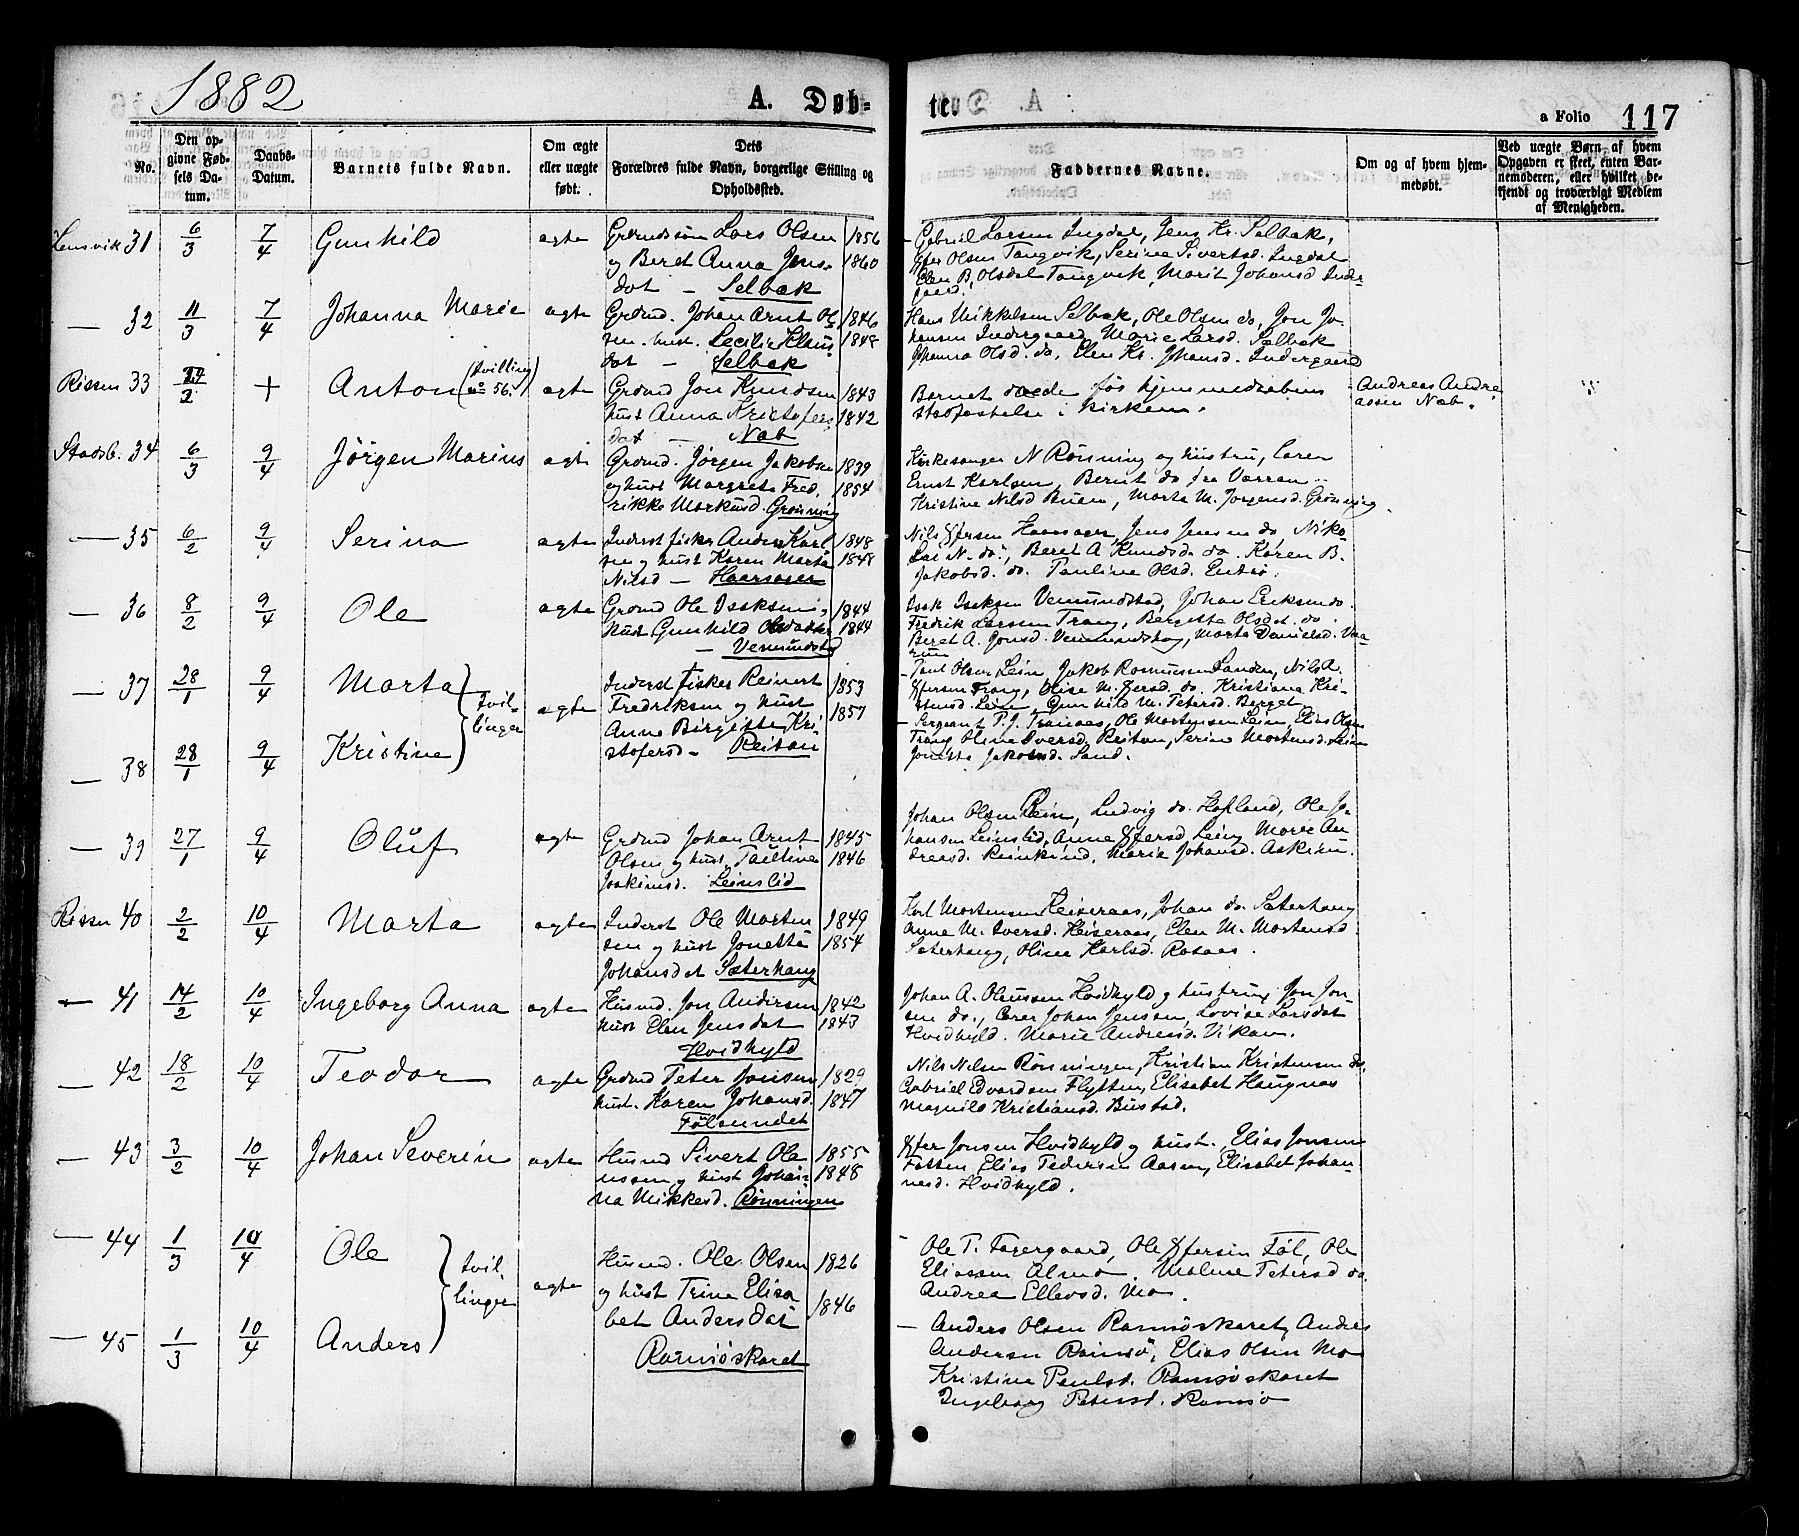 1882
A. Døb-
te.
a Folio 117
No.
Den op-
givne Fød-
sels Da-
tum.
Daabs-
Datum.
Barnets fulde Navn.
Om ægte
eller uægte
født.
Dets
Forældres fulde Navn, borgerlige Stilling og
Opholdssted.
Faddernes Navne.
Om og af hvem hjem-
medøbt.
Ved uægte Børn af hvem
Opgaven er skeet, enten Bar-
nemoderen, eller hvilket be-
kjendt og troværdigt Medlem
af Menigheden.
Lensvik 31 6/3 7/4 Gunhild ægte
Lars Olsen 1856
og Beret Anna Jens- 1860
dat — Selbæk
Gabriel Larsen Ingdal, Jens Kr. Selbæk,
Olsen Tangvik, Serine Sivertsd. Ingdal
Elen B. Olsdat Tangvik, Marit Johansd Inder-
gaard.
— 32 11/3 7/4 Johanna Marie ægte
Grdmd. Johan Arnt Ol 1846
sen. hust. Cecilie Klaus 1848
dat — Selbæk
Hans Mikkelsen Selbæk, Ole Olsen do, Jon Jo-
hansen Indergaard, Marie Larsd. Selbæk
Johanna Olsd. do, Elen Kr. Johansd. Indergaard
Rissen 33 24/2 + Anton (tvilling no 56.) ægte
Grdmd Jon Knudsen 1843
hust Anna Kristofers 1842
dat — Næb
Barnet døde før hjemmedaabens
stadfæstelse i kirken.
Andreas Andre
assen Næb.
Stadsb. 34 6/3 9/4 Jörgen Marius ægte
Grdmd. Jörgen Jakobsen 1839
og hust Margrete Fred. 1854
rikke Markusd. Grönning
Kirkesanger N Rönning og hustru,
Ernst Karlsen, Bernt do fra
Kristine Nilsd Buan, Marta M. Jörgensd. Grönning
— 35 6/2 9/4 Serina ægte
Inderst fisker Anders Karl 1848
sen og hust Karen Marta 1848
Nilsd — Haarsaker
Jens Jensen do, Niko-
lai N. do, Beret A Knudsd. do. Karen B.
Jakobsd. do. Pauline Olsd.
— 36 8/2 9/4 Ole ægte
Grdmd Ole Isaksen, 1844
hust Gunhild 1844
— Vemundstad
Isak Isaksen Vemundstad, Johan Eriksen do.
Fredrik Larsen Trang, Bergitte Olsdat. do.
Beret A. Jonsd. Marta Danielsd.
— 37 28/1 9/4 Marta tvil-
linger ægte
Inderst fisker Reinert 1853
Fredriksen og hust 1857
Anne Birgitte Kri-
stofersd — Reitan
Paul Olsen Lein, Jakob Rasmussen Sanden, Nils A.
Trang, Olise M. do. Kristiana Kri-
Lein, Gunhild M. Petersd. Berget
— 38 28/1 9/4 Kristine
Sergeant P. J. Ole Mortensen Lein, Elias Olsen
Trang Oline Iversd. Reitan, Serine Mortensd. Lein
Jonetta Jakobsd. Sand.
— 39 27/1 9/4 Oluf ægte
Grdmd Johan Arnt 1845
Olsen og hust Pauline 1846
Joakimsd. Leinslid
Johan Olsen Lein, Ludvig do. Hofland, Ole Jo-
hansen Leinslid, Anne Lein, Marie An
dreasd. Reinkind, Marie Johansd. Askim.
Rissen 40 2/2 10/4 Marta ægte
Inderst Ole Morten 1849
sen og hust Jonetta 1854
Johansdat Sæterhaug
Karl Mortensen Heiseraas, Johan do. Sæterhaug
Anne M. Iversd. Heiseraas, Elen M. Mortensd
Sæterhaug, Oline Karlsd. Rosaas.
— 41 14/2 10/4 Ingeborg Anna ægte
Husmd. Jon Andersen 1842
hust Elen Jensdat 1843
Hvidhyld
Johan A. Olaussen Hvidhyld og hustru, Jon Jon-
sen do., Johan Jensen, Lovise Larsdat
Hvidhyld. Marie Andreasd. Vikan.
— 42 18/2 10/4 Teodor ægte
Grdmd Peter Jansen 1829
hust. Karen Johansd. 1847
Fölsundet
Nils Nilsen Rönningen, Kristian Kristensen do,
Gabriel Edvardsen Flytten, Elisabet Haugnæs
Magnild Kristiansd. Bustad.
— 43 3/2 10/4 Johan Severin ægte
Husmd Sivert Ole 1855
ussen, og hust Johan- 1848
na Mikkelsd. Rönningen
Jonsen Hvidhyld og hust. Elias Jonsen
Fatten, Elias Pedersen Aasen, Elisabet Johan-
nesd. Hvidhyld.
— 44 1/3 10/4 Ole tvil-
linger ægte
Husmd. Ole Olsen 1826
og hust Trine Elisa 1846
bet Andersdat
Ramsöskaret
Ole P. Fagergaard, Ole Föl, Ole
Eliassen Almo. Malene Petersd do
Andrea Ellevsd. Mo.
— 45 1/3 10/4 Anders
— Anders Olsen Ramsöskaret, Andreas
Andersen Ramsö, Elias Olsen Mo
Kristine Paulsd. Ramsöskaret
Ingeborg Petersd. Ramsö